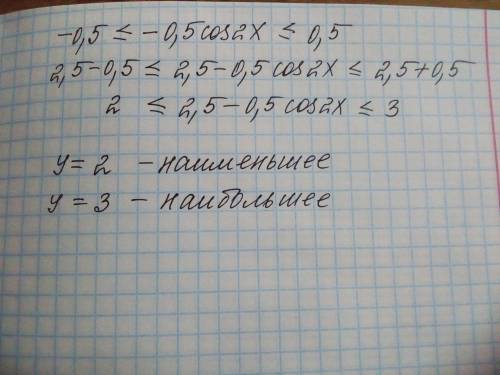 -0,5 ≤ -0,5cos2x ≤ 0,5
2,5-0,5 ≤ 2,5-0,5cos2x ≤ 2,5+0,5
2 ≤ 2,5-0,5cos2x ≤ 3
y=2 - наименьшее
y=3 - наибольшее